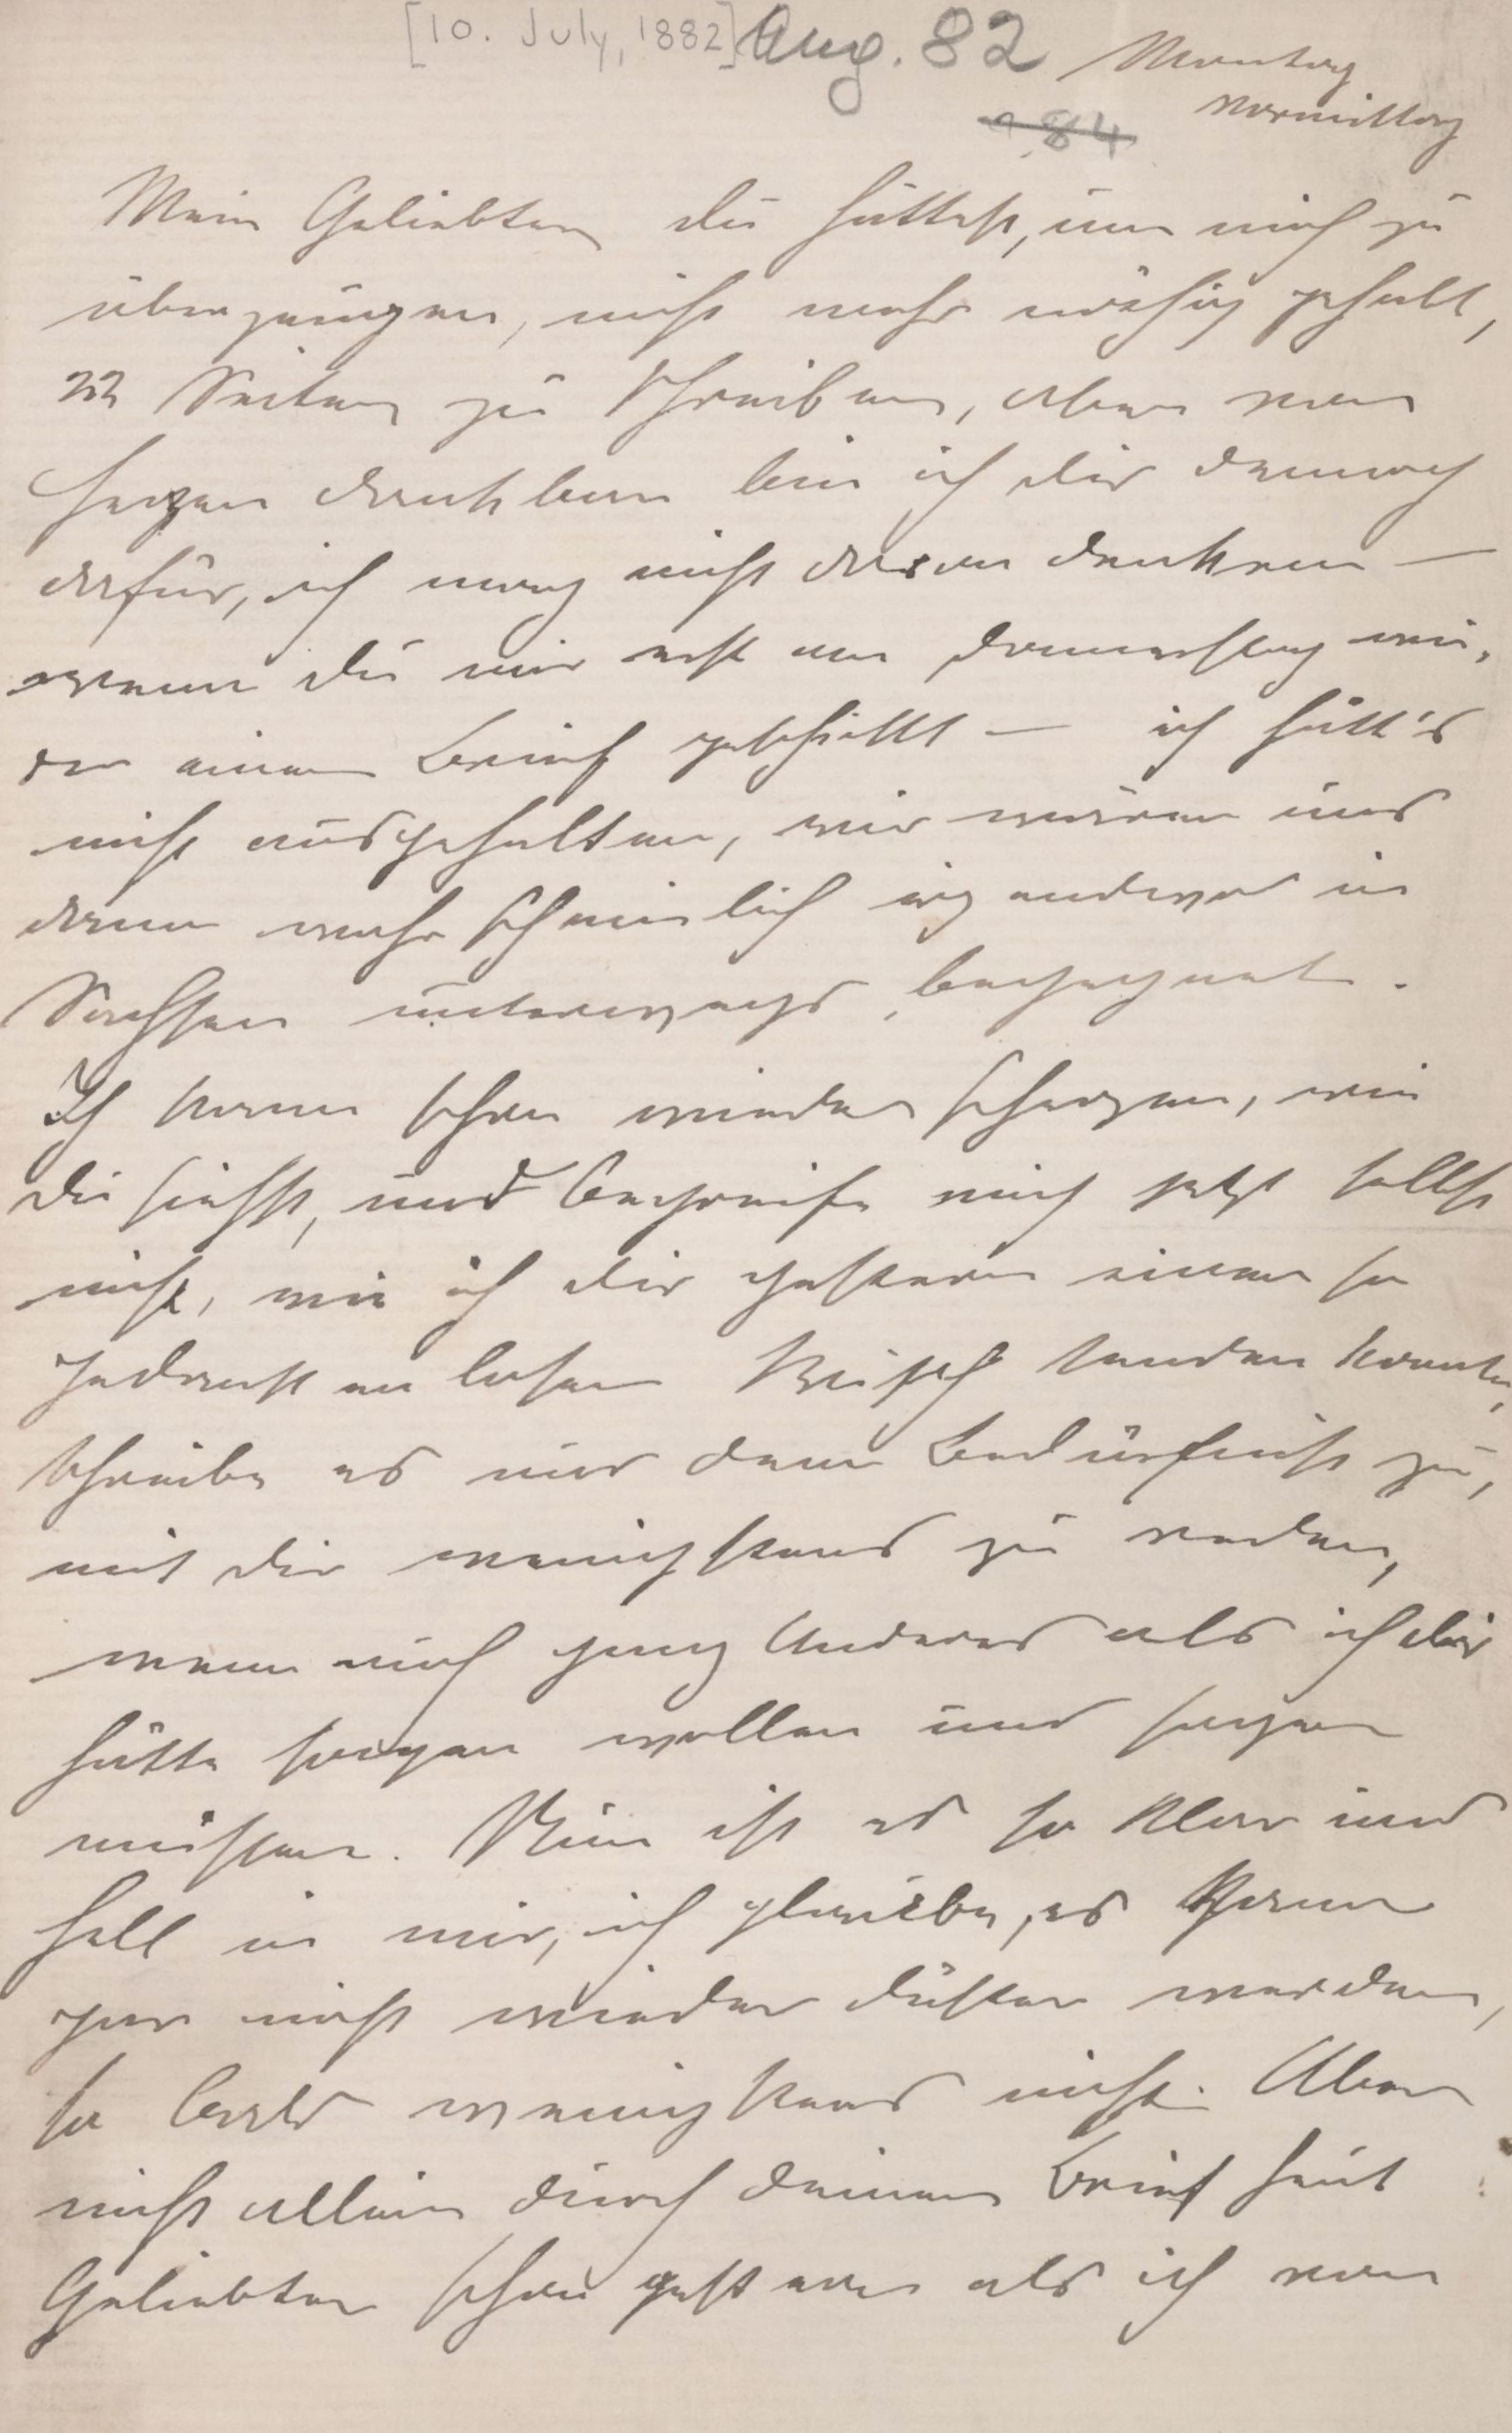 [10. July, 1882] Aug. 82 Montag
84 Vormittag
Mein Geliebter du hättest, um mich zu
überzeugen, nicht mehr nöthig gehabt,
22 Seiten zu schreiben, aber von
Herzen dankbar bin ich dir dennoch
dafür, ich mag nicht daran denken —
wenn du mir erst am Donnerstag wie-
der einen Brief geschickt — ich hätt's
nicht ausgehalten, wir wären uns
dann wahrscheinlich irgendwo in
Sachsen unterwegs begegnet.
Ich kann schon wieder scherzen, wie
du siehst, und begreife mich jetzt selbst
nicht, wie ich dir gestern einen so
senden konnte,
schreibe es nur dem Bedürfniß zu,
mit dir wenigstens zu reden,
wenn auch ganz Anderes als ich dir
hätte sagen wollen und sagen
müssen. Nun ist es so klar und
hell in mir, ich glaube, es kann
gar nicht wieder düster werden,
so bald wenigstens nicht. Aber
nicht allein durch deinen Brief heut
Geliebter schon gestern als ich von